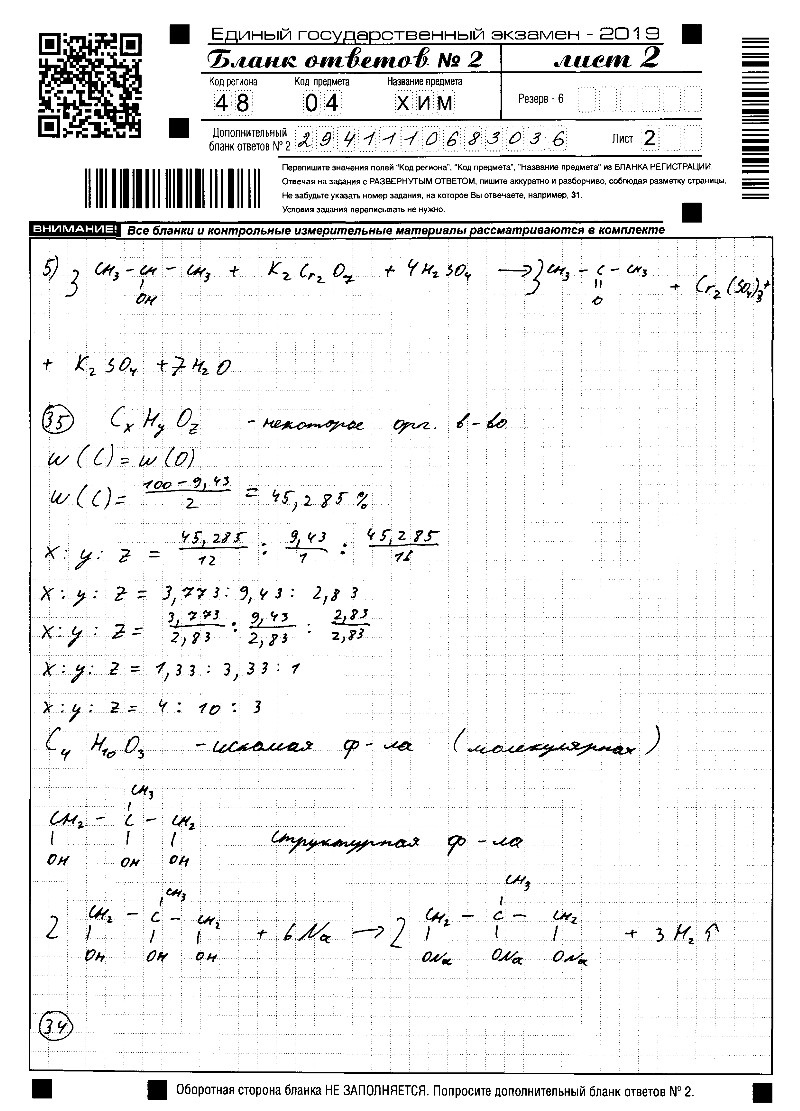 Единый государственный экзамен - 2019
Бланк ответов № 2
лист 2
Код региона Код предмета Название предмета
48 04 ХИМ Резерв - 6
Дополнительный бланк ответов № 2 2941110683036 Лист 2
Перепишите значения полей "Код региона", "Код предмета", "Название предмета" из БЛАНКА РЕГИСТРАЦИИ
Отвечая на задания с РАЗВЕРНУТЫМ ОТВЕТОМ, пишите аккуратно и разборчиво, соблюдая разметку страницы.
Не забудьте указать номер задания, на которое Вы отвечаете, например, 31.
Условия задания переписывать не нужно.
ВНИМАНИЕ! Все бланки и контрольные измерительные материалы рассматриваются в комплекте
5) 3 CH3 - CH - CH3 + K2Cr2O7 + 4H2SO4 → 3 CH3 - C - CH3 + Cr2(SO4)3 +
OH O
+ K2SO4 + 7H2O
35 CxHyOz - некоторое орг. в-во
w(C) = w(O)
w(C) = 100 - 9,43 / 2 = 45,285 %
x : y : z = 45,285/12 : 9,43/1 : 45,285/16
x : y : z = 3,773 : 9,43 : 2,83
x : y : z = 3,773/2,83 : 9,43/2,83 : 2,83/2,83
x : y : z = 1,33 : 3,33 : 1
x : y : z = 4 : 10 : 3
C4H10O3 - искомая ф-ла (молекулярная)
CH3
CH2 - C - CH2
OH OH OH структурная ф-ла
CH3 CH3
2 CH2 - C - CH2 + 6Na → 2 CH2 - C - CH2 + 3H2↑
OH OH OH ONa ONa ONa
34
Оборотная сторона бланка НЕ ЗАПОЛНЯЕТСЯ. Попросите дополнительный бланк ответов № 2.